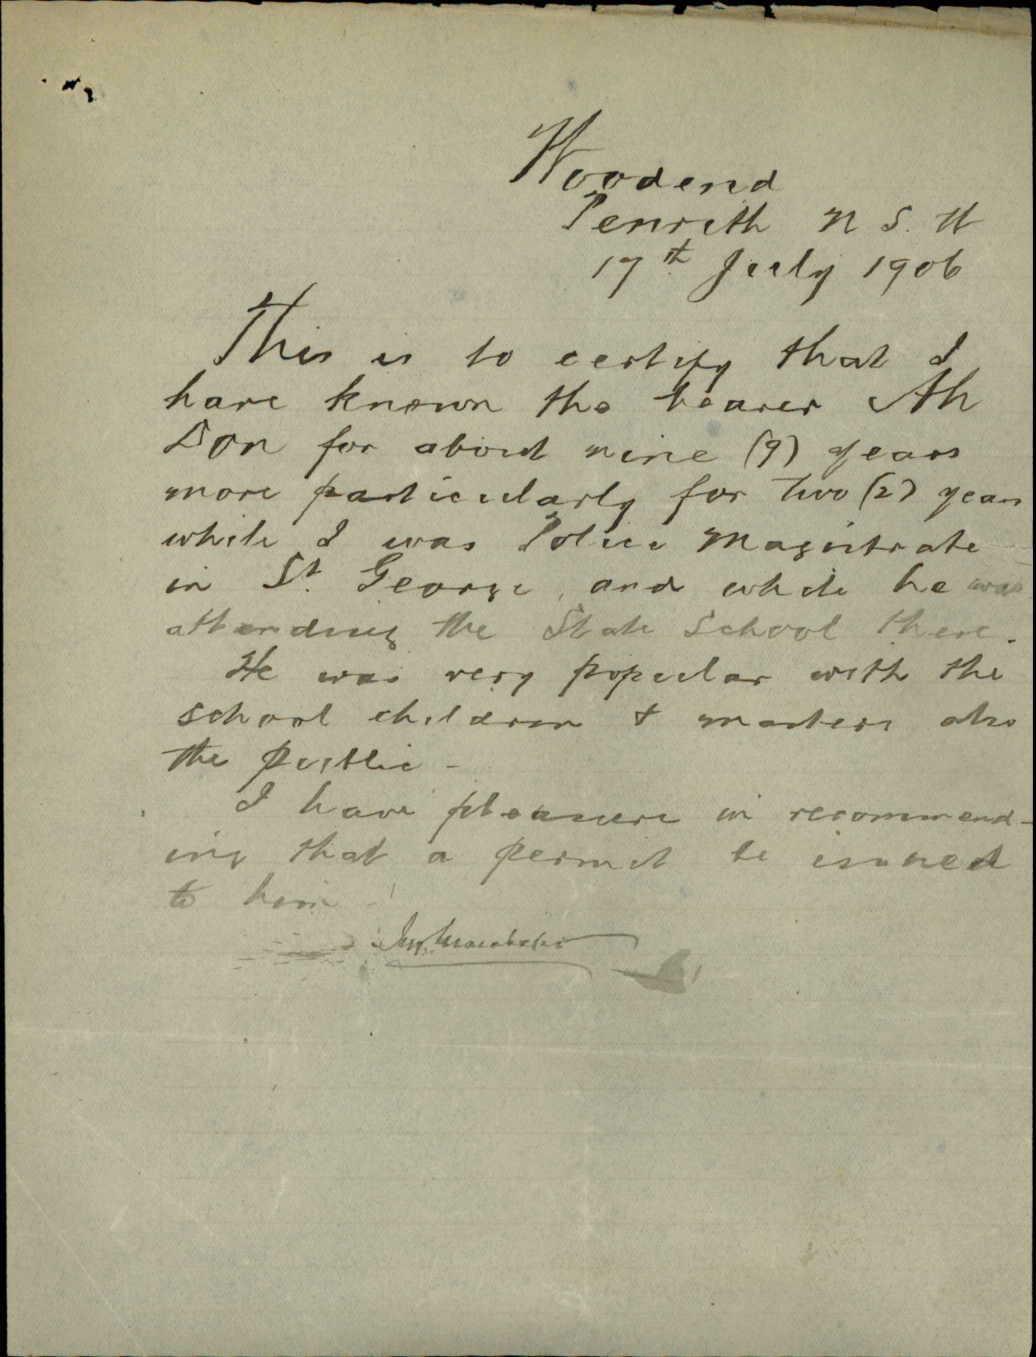 Woodend
Penrith N S. W
17th July 1906
This is to certify that I
have known the bearer Ah
Son for about nine (9) years
more particularly for two (2) years
while I was Police Magistrate
in St. George, and while he was
attending the State School there.
He was very popular with the
school children & masters also
the public -
I have pleasure in recommend-
ing that a permit be issued
to him